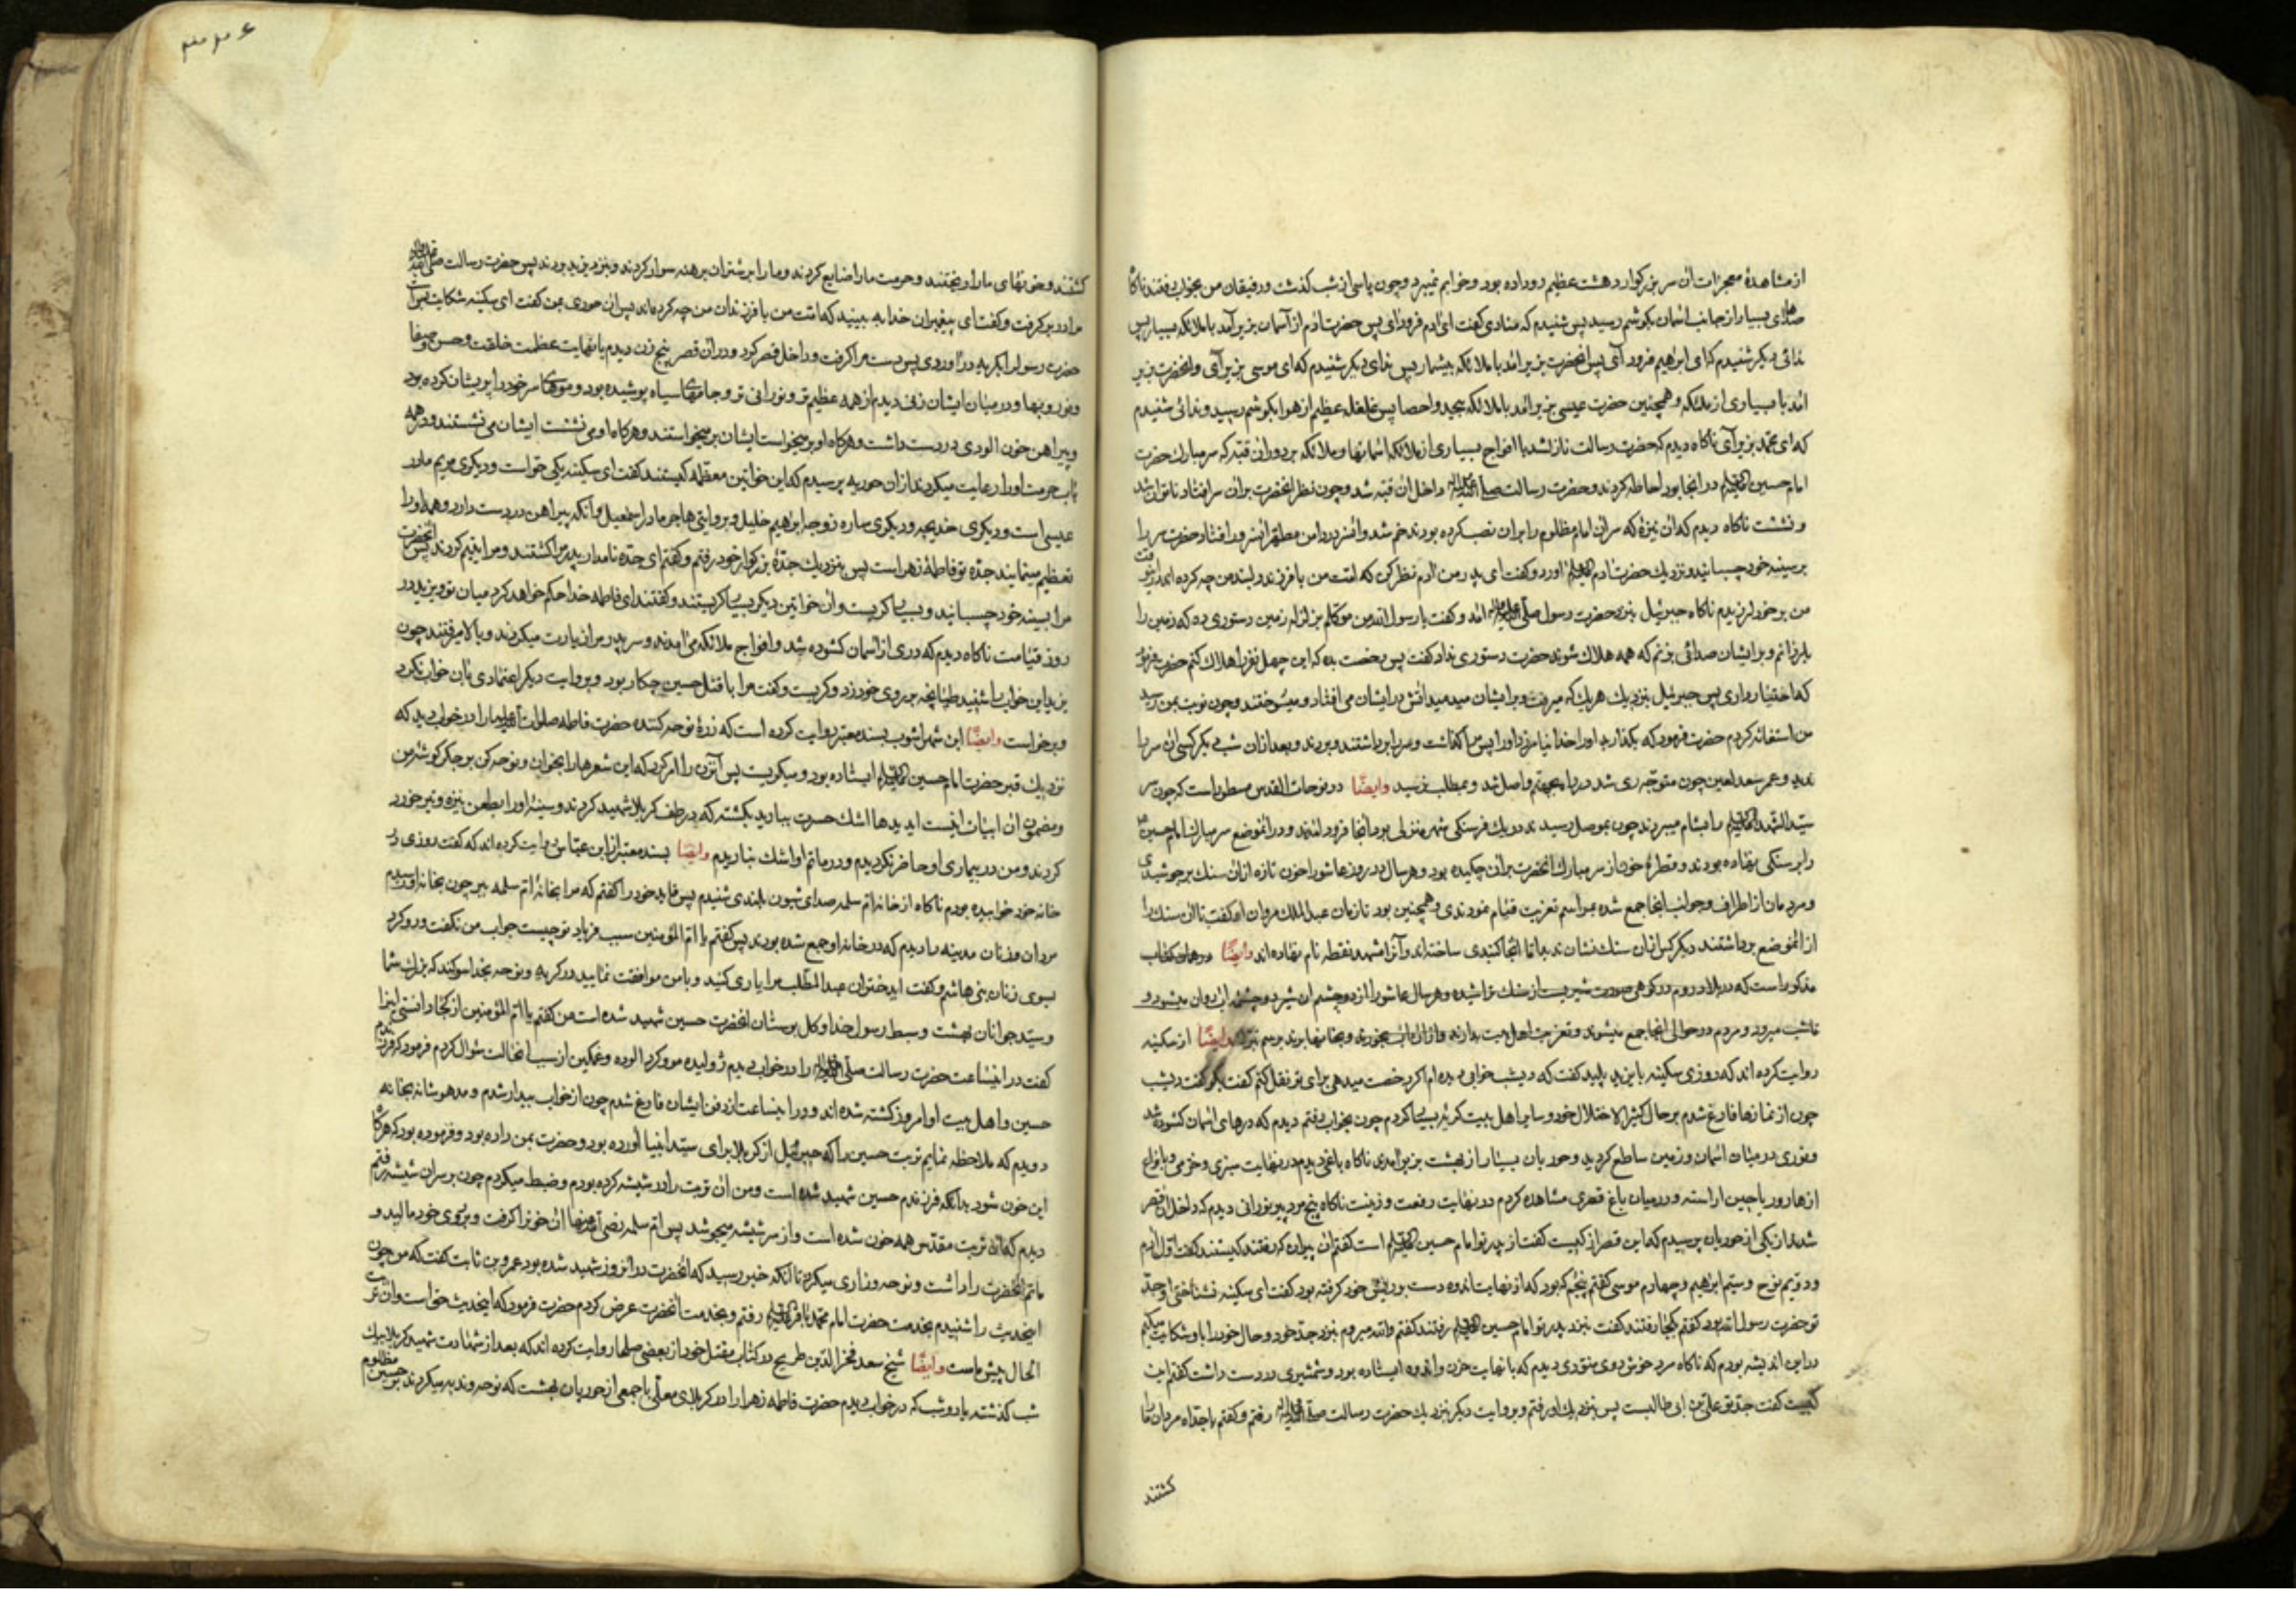 از مشاهدهٔ معجزات آن سر بزرکوار دهشت عظیم رو داده بود و خوابم نمیبرد و چون پاسی از شب کذشت و رفیقان من بخواب رفتند ناکاه
صداهای بسیار از جانب آسمان بکوشم رسید پس شنیدم که منادی کفت ای آدم فرود آی پس حضرت آدم از آسمان بزیر آمد با ملائکه بسیار پس
ندائی دیکر شنیدم که ای ابراهیم فرود آی پس آنحضرت بزیر آمد با ملائکه بیشمار پس ندای دیکر شنیدم که ای موسی بزیر آی و آنحضرت بزیر
آمد با بسیاری از ملائکه و همچنین حضرت عیسی بزیر آمد با ملائکه بیحد و احصا پس غلغله عظیم از هوا بکوشم رسید و ندائی شنیدم
که ای محمد بزیر آی ناکاه دیدم که حضرت رسالت نازل شد با افواج بسیاری از ملائکه آسمانها و ملائکه بر دور آن قبه که سر مبارک حضرت
امام حسین در آنجا بود احاطه کردند و حضرت رسالت داخل آن قبه شد و چون نظر آنحضرت بر آن سر افتاد ناتوان شد
و نشست ناکاه دیدم که آن نیزهٔ که سر آن امام مظلوم را بر آن نصب کرده بودند خم شد و آن سر در دامن مطهر آن سرور افتاد حضرت سر را
بر سینه خود چسبانید و نزدیک حضرت آدم آورد و کفت ای پدر من آدم نظر کن که امت من با فرزند دلبند من چه کرده اند در این وقت
من بر خود لرزیدم ناکاه جبرئیل بنزد حضرت رسول آمد و کفت یا رسول الله من موکلم بزلزله زمین دستوری ده که زمین را
بلرزانم و بر ایشان صدائی بزنم که همه هلاک شوند حضرت دستوری نداد کفت پس رخصت بده که این چهل نفر را هلاک کنم حضرت فرمود
که اختیار داری پس جبرئیل نزدیک هر یک که میرفت و بر ایشان میدمید آتش در ایشان می افتاد و میسوختند و چون نوبت بمن رسید
من استغاثه کردم حضرت فرمود که بکذارید او را خدا نیامرزد او را پس مرا کذاشت و سر را برداشتند و بردند و بعد از آن شب دیکر کسی آن سر را
ندید و عمر سعد لعین چون متوجه ری شد در راه بجهنم واصل شد و بمطلب نرسید وایضًا در نوحات القدس مسطور است که چون سر
سید الشهدا را بشام میبردند چون بموصل رسیدند در یک فرسنکی شهر منزلی بود آنجا فرود آمدند و در آنموضع سر مبارک امام حسین
را بر سنکی نهاده بودند و قطرهٔ خون از سر مبارک آنحضرت بر آن چکیده بود و هر سال در روز عاشورا خون تازه از آن سنک بر جوشیدی
و مردمان از اطراف و جوانب آنجا جمع شده بمراسم تعزیت قیام نمودندی و همچنین بود تا زمان عبد الملک مروان که کفت تا آن سنک را
از آنموضع برداشتند دیکر کس از آن سنک نشان نداد اما آنجا کنبدی ساخته اند و آنرا مشهد نقطه نام نهاده اند وایضًا در همان کتاب
مذکور است که در بلاد روم در کوهی صورت شیریست از سنک تراشیده و هر سال عاشورا از دو چشم آن شیر دو چشمه آب روان میشود و
تا شب میرود و مردم در حوالی آنجا جمع میشوند و تعزیت اهل بیت بدارند و از آن آب بخورند و بخانها برند برسم تبرک وایضًا از سکینه
روایت کرده اند که روزی سکینه با یزید پلید کفت که دیشب خوابی دیده ام اکر رخصت میدهی برای تو نقل کنم کفت بکو کفت دیشب
چون از نمازها فارغ شدم بر حال کثیر الاختلال خود و سایر اهل بیت کریهٔ بسیار کردم چون بخواب رفتم دیدم که درهای آسمان کشوده شد
و نوری در میان آسمان و زمین ساطع کردید و حوریان بسیار از بهشت بزیر آمدند ناکاه باغی دیدم در نهایت سبزی و خرمی و بانواع
ازهار و ریاحین آراسته و در میان باغ قصری مشاهده کردم در نهایت رفعت و زینت ناکاه پنج مرد پیر نورانی دیدم که داخل آن قصر
شدند از یکی از حوریان پرسیدم که این قصر از کیست کفت از پدر تو امام حسین است کفتم آن پیران که رفتند کیستند کفت اول آدم
و دویم نوح و سیم ابراهیم و چهارم موسی کفتم پنجم که بود که از نهایت اندوه دست بر ریش خود کرفته بود کفت ای سکینه نشناختی او جد
تو حضرت رسول الله بود کفتم کجا رفتند کفت بنزد پدر تو امام حسین رفتند کفتم والله میروم بنزد جد خود و حال خود را باو شکایت میکنم
در این اندیشه بودم که ناکاه مرد خوش روی منوری دیدم که با نهایت حزن و اندوه ایستاده بود و شمشیری در دست داشت کفتم این
کیست کفت جد تو علی بن ابی طالبست پس بنزدیک او رفتم و بروایت دیکر بنزدیک حضرت رسالت رفتم و کفتم یا جداه مردان ما را
کشتند
کشتند و خونهای ما را ریختند و حرمت ما را ضایع کردند و ما را بر شتران برهنه سوار کردند و بنزد یزید بردند پس حضرت رسالت
مرا در بر کرفت و کفت ای پیغمبران خدا به بینید که امت من با فرزندان من چه کرده اند پس آن حوری بمن کفت ای سکینه شکایت بس است
حضرت رسول را بکریه در آوردی پس دست مرا کرفت و داخل قصر کرد و در آن قصر پنج زن دیدم با نهایت عظمت خلقت و حسن و صفا
و نور و بها و در میان ایشان زنی دیدم از همه عظیم تر و نورانی تر و جامهای سیاه پوشیده بود و موهای سر خود را پریشان کرده بود
و پیراهن خون آلودی در دست داشت و هرکاه او بر میخواست ایشان بر میخواستند و هرکاه او می نشست ایشان می نشستند و در همه
باب حرمت او را رعایت میکردند از آن حوریه پرسیدم که این خواتین معظمه کیستند کفت ای سکینه یکی حواست و دیکری مریم مادر
عیسی است و دیکری خدیجه و دیکری ساره زوجه ابراهیم خلیل و بروایتی هاجر مادر اسمعیل و آنکه پیراهن در دست دارد و همه او را
تعظیم مینمایند جدّه تو فاطمهٔ زهراست پس بنزدیک جدّهٔ بزرکوار خود رفتم و کفتم ای جدّه نامدار پدر مرا کشتند و مرا یتیم کردند پس آنحضرت
مرا بسینه خود چسبانید و بسیار کریست و آن خواتین دیکر بسیار کریستند و کفتند ای فاطمه خدا حکم خواهد کرد میان تو و یزید در
روز قیامت ناکاه دیدم که دری از آسمان کشوده شد و افواج ملائکه می آمدند و سر پدر مرا زیارت میکردند و بالا میرفتند چون
یزید این خواب را شنید طپانچه بر روی خود زد و کریست و کفت مرا با قتل حسین چکار بود و بروایت دیکر اعتمادی بآن خواب نکرد
و برخواست وایضًا ابن شهر اشوب بسند معتبر روایت کرده است که زرهٔ نوحه کننده حضرت فاطمه صلوات الله علیها را در خواب دید که
نزدیک قبر حضرت امام حسین ایستاده بود و میکریست پس آنزن را امر کرد که این شعرها را بخوان و نوحه کن بر جکر کوشهٔ من
و مضمون آن ابیات اینست ای دیدها اشک حسرت ببارید بر کشته که در طف کربلا شهید کردند و سینهٔ او را بطعن نیزه و تیر خورد
کردند و من در بیماری او حاضر نکردیدم و در ماتم او اشک نباریدم وایضًا بسند معتبر از ابن عباس روایت کرده اند که کفت روزی در
خانه خود خوابیده بودم ناکاه از خانه ام سلمه صدای شیون بلندی شنیدم پس قاید خود را کفتم که مرا بخانهٔ ام سلمه ببر چون بخانه او رسیدم
مردان و زنان مدینه را دیدم که در خانه او جمع شده بودند پس کفتم یا ام المؤمنین سبب فریاد تو چیست جواب من نکفت و رو کرد
بسوی زنان بنی هاشم و کفت ای دختران عبد المطلب مرا یاری کنید و با من موافقت نمایید در کریه و نوحه بخدا سوکند که بزرک شما
و سید جوانان بهشت و سبط رسول خدا و کل بوستان آنحضرت حسین شهید شده است من کفتم یا ام المؤمنین از کجا دانستی اینرا
کفت در اینساعت حضرت رسالت را در خواب دیدم ژولیده مو و کرد آلوده و غمکین از سبب آنحالت سؤال کردم فرمود که فرزندم
حسین و اهل بیت او امروز کشته شده اند و در اینساعت از دفن ایشان فارغ شدم چون از خواب بیدار شدم و مدهوشانه بخانه
دویدم که ملاحظه نمایم تربت حسین را که جبرئیل از کربلا برای سید انبیا آورده بود و حضرت بمن داده بود و فرموده بود که هرکاه
این خون شود بدانکه فرزندم حسین شهید شده است و من آن تربت را در شیشه کرده بودم و ضبط میکردم چون بر سر آن شیشه رفتم
دیدم که آن تربت مقدس همه خون شده است و از سر شیشه میجوشد پس ام سلمه رضی الله عنها آن خونرا کرفت و بر روی خود مالید و
ماتم آنحضرت را داشت و نوحه و زاری میکرد تا آنکه خبر رسید که آنحضرت در آنروز شهید شده بود عمرو بن ثابت کفت که من چون
اینحدیث را شنیدم بخدمت حضرت امام محمد باقر رفتم و بخدمت آنحضرت عرض کردم حضرت فرمود که اینحدیث حق است و آن تربت
الحال پیش ماست وایضًا شیخ سعد فخر الدین طریح در کتاب مقتل خود از بعضی صلحا روایت کرده اند که بعد از شهادت شهید کربلا بیک
شب کذشته یا دو شب که در خواب دیدم حضرت فاطمه زهرا را در کربلای معلّی با جمعی از حوریان بهشت که نوحه و ندبه میکردند بر حسین مظلوم